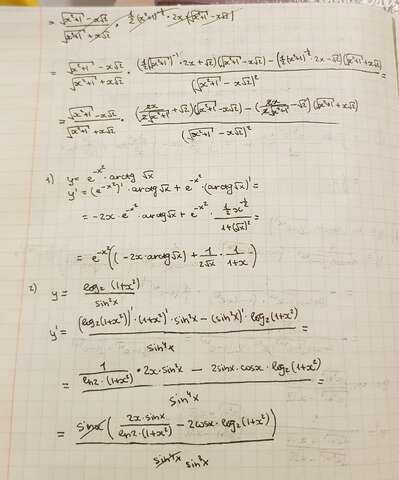 = √(x²+1) - x√2 / √(x²+1) + x√2 · ½(x²+1)^-½ · 2x + (√(x²+1) - x√2)
= √(x²+1) - x√2 / √(x²+1) + x√2 · (½(√(x²+1))^-1 · 2x + √2)(√(x²+1) - x√2) - (½(x²+1)^-½ · 2x - √2)(√(x²+1) + x√2) / (√(x²+1) - x√2)² =
= √(x²+1) - x√2 / √(x²+1) + x√2 · (2x / 2√(x²+1) + √2)(√(x²+1) - x√2) - (2x / 2√(x²+1) - √2)(√(x²+1) + x√2) / (√(x²+1) - x√2)²
1) y = e^-x² · arctg √x
y' = (e^-x²)' · arctg √x + e^-x² · (arctg √x)' =
= -2x · e^-x² · arctg √x + e^-x² · ½x^-½ / 1+(√x)² =
= e^-x² ((-2x · arctg √x) + 1/2√x · 1/1+x)
2) y = log₂(1+x²) / sin²x
y' = (log₂(1+x²))' · (1+x²)' · sin²x - (sin²x)' · log₂(1+x²) / sin⁴x =
= 1 / ln2 · (1+x²) · 2x · sin²x - 2sinx · cosx · log₂(1+x²) / sin⁴x =
= sinx (2x · sinx / ln2 · (1+x²) - 2cosx · log₂(1+x²)) / sin⁴x sin³x